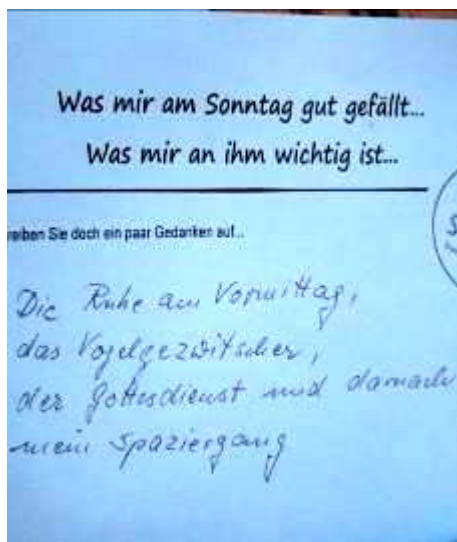 Was mir am Sonntag gut gefällt...
Was mir an ihm wichtig ist...
reiben Sie doch ein paar Gedanken auf...
Die Ruhe am Vormittag,
das Vogelgezwitscher,
der Gottesdienst und danach
mein Spaziergang